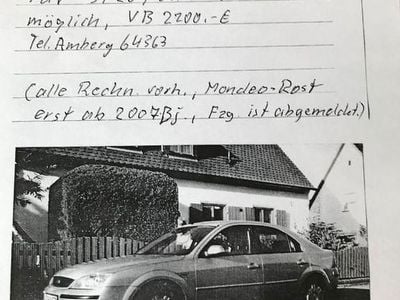 möglich, VB 2200.-€
Tel. Amberg 64363
(alle Rechn. vorh., Mondeo-Rost
erst ab 2007 Bj., Fzg. ist abgemeldet.)